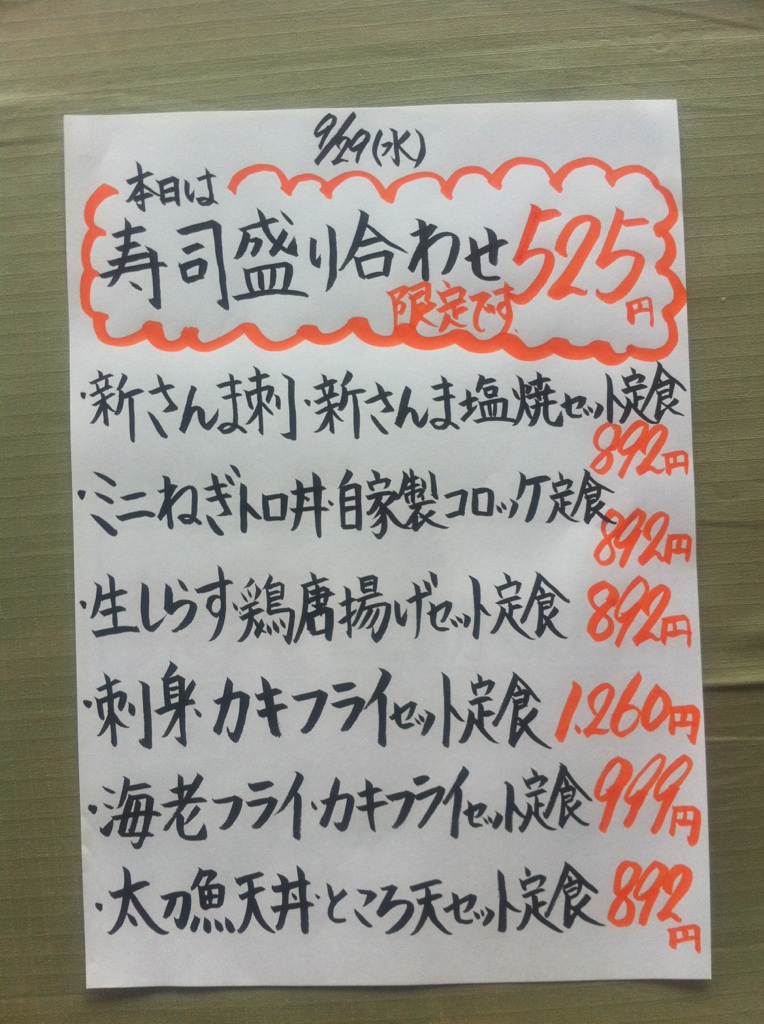 9/29(水)
本日は
寿司盛り合わせ525円
限定です
・新さんま刺・新さんま塩焼セット定食
892円
・ミニねぎトロ丼・自家製コロッケ定食
892円
・生しらす・鶏唐揚げセット定食 892円
・刺身・カキフライセット定食 1.260円
・海老フライ・カキフライセット定食 999円
・太刀魚天丼・ところ天セット定食 892円